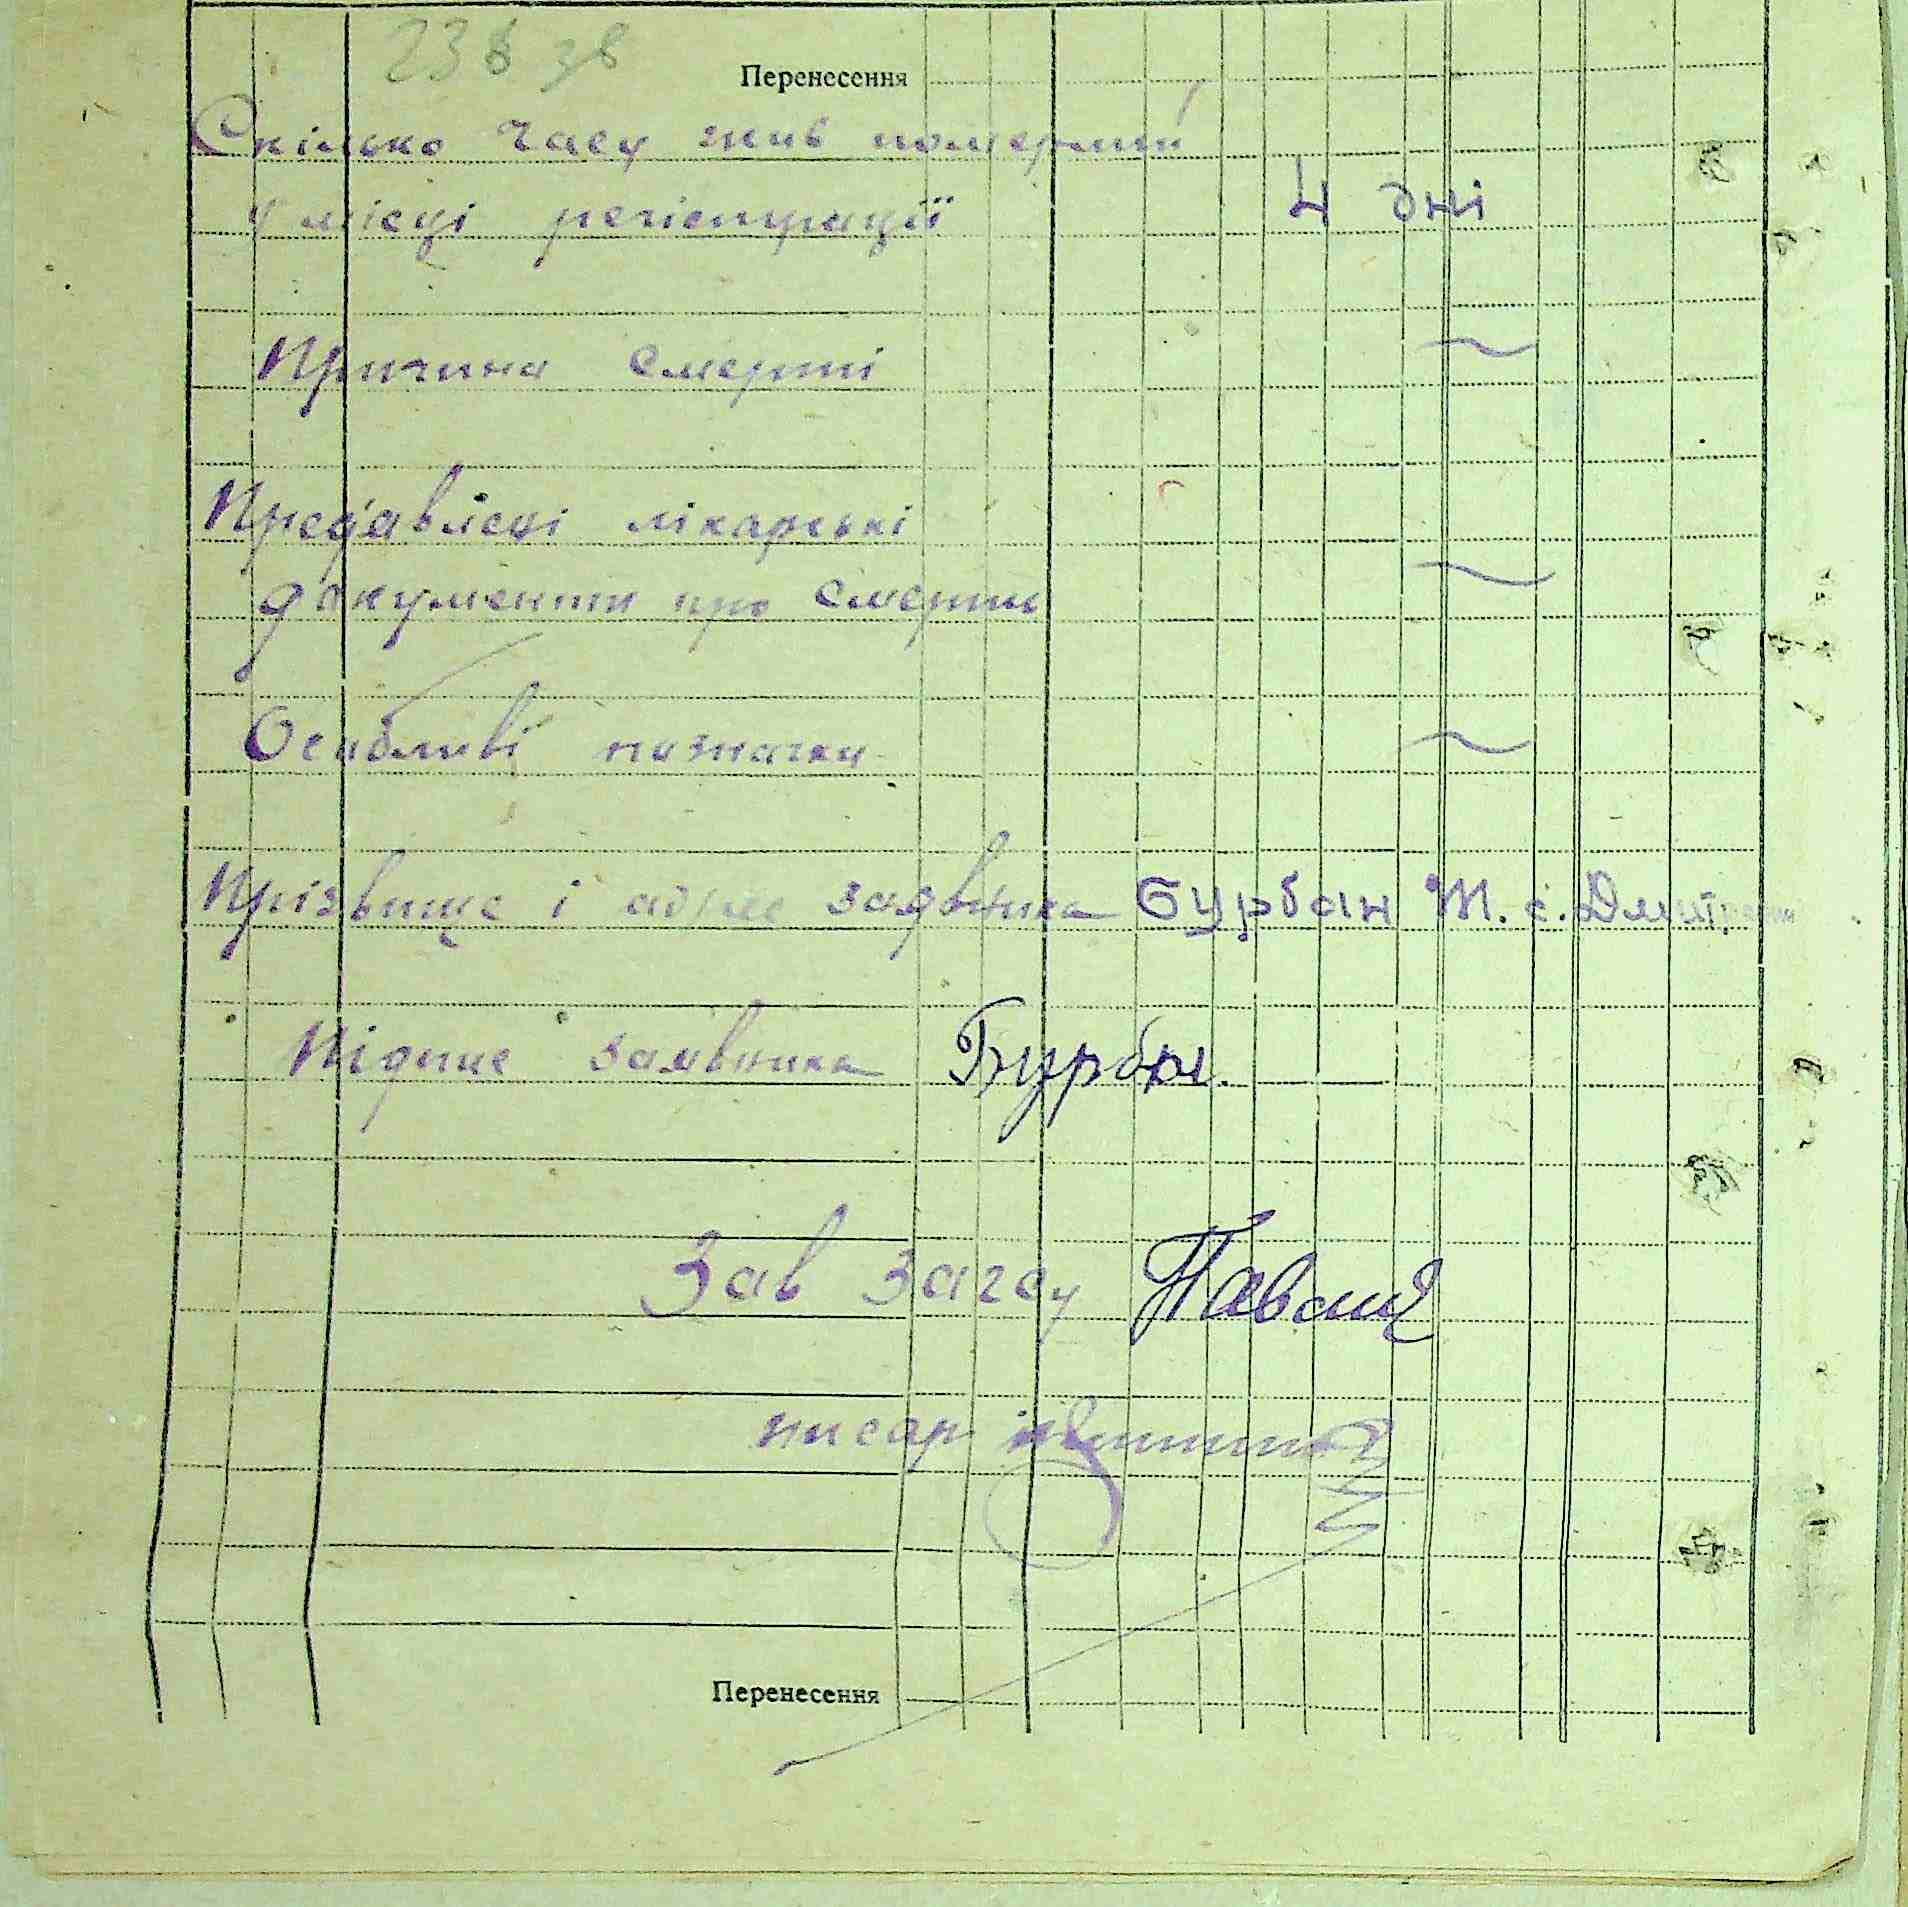 23 зв
Перенесення
Скілько часу жив померший
у місці регістрації 4 дні
Причина смерти ~
Предʼявлені лікарські
документи про смерть ~
Особливі позначки ~
Прізвище і адрес заявника Бурбан Т. с. Дмитр
Підпис заявника Бурбн.
Зав Загсу
писар
Перенесення